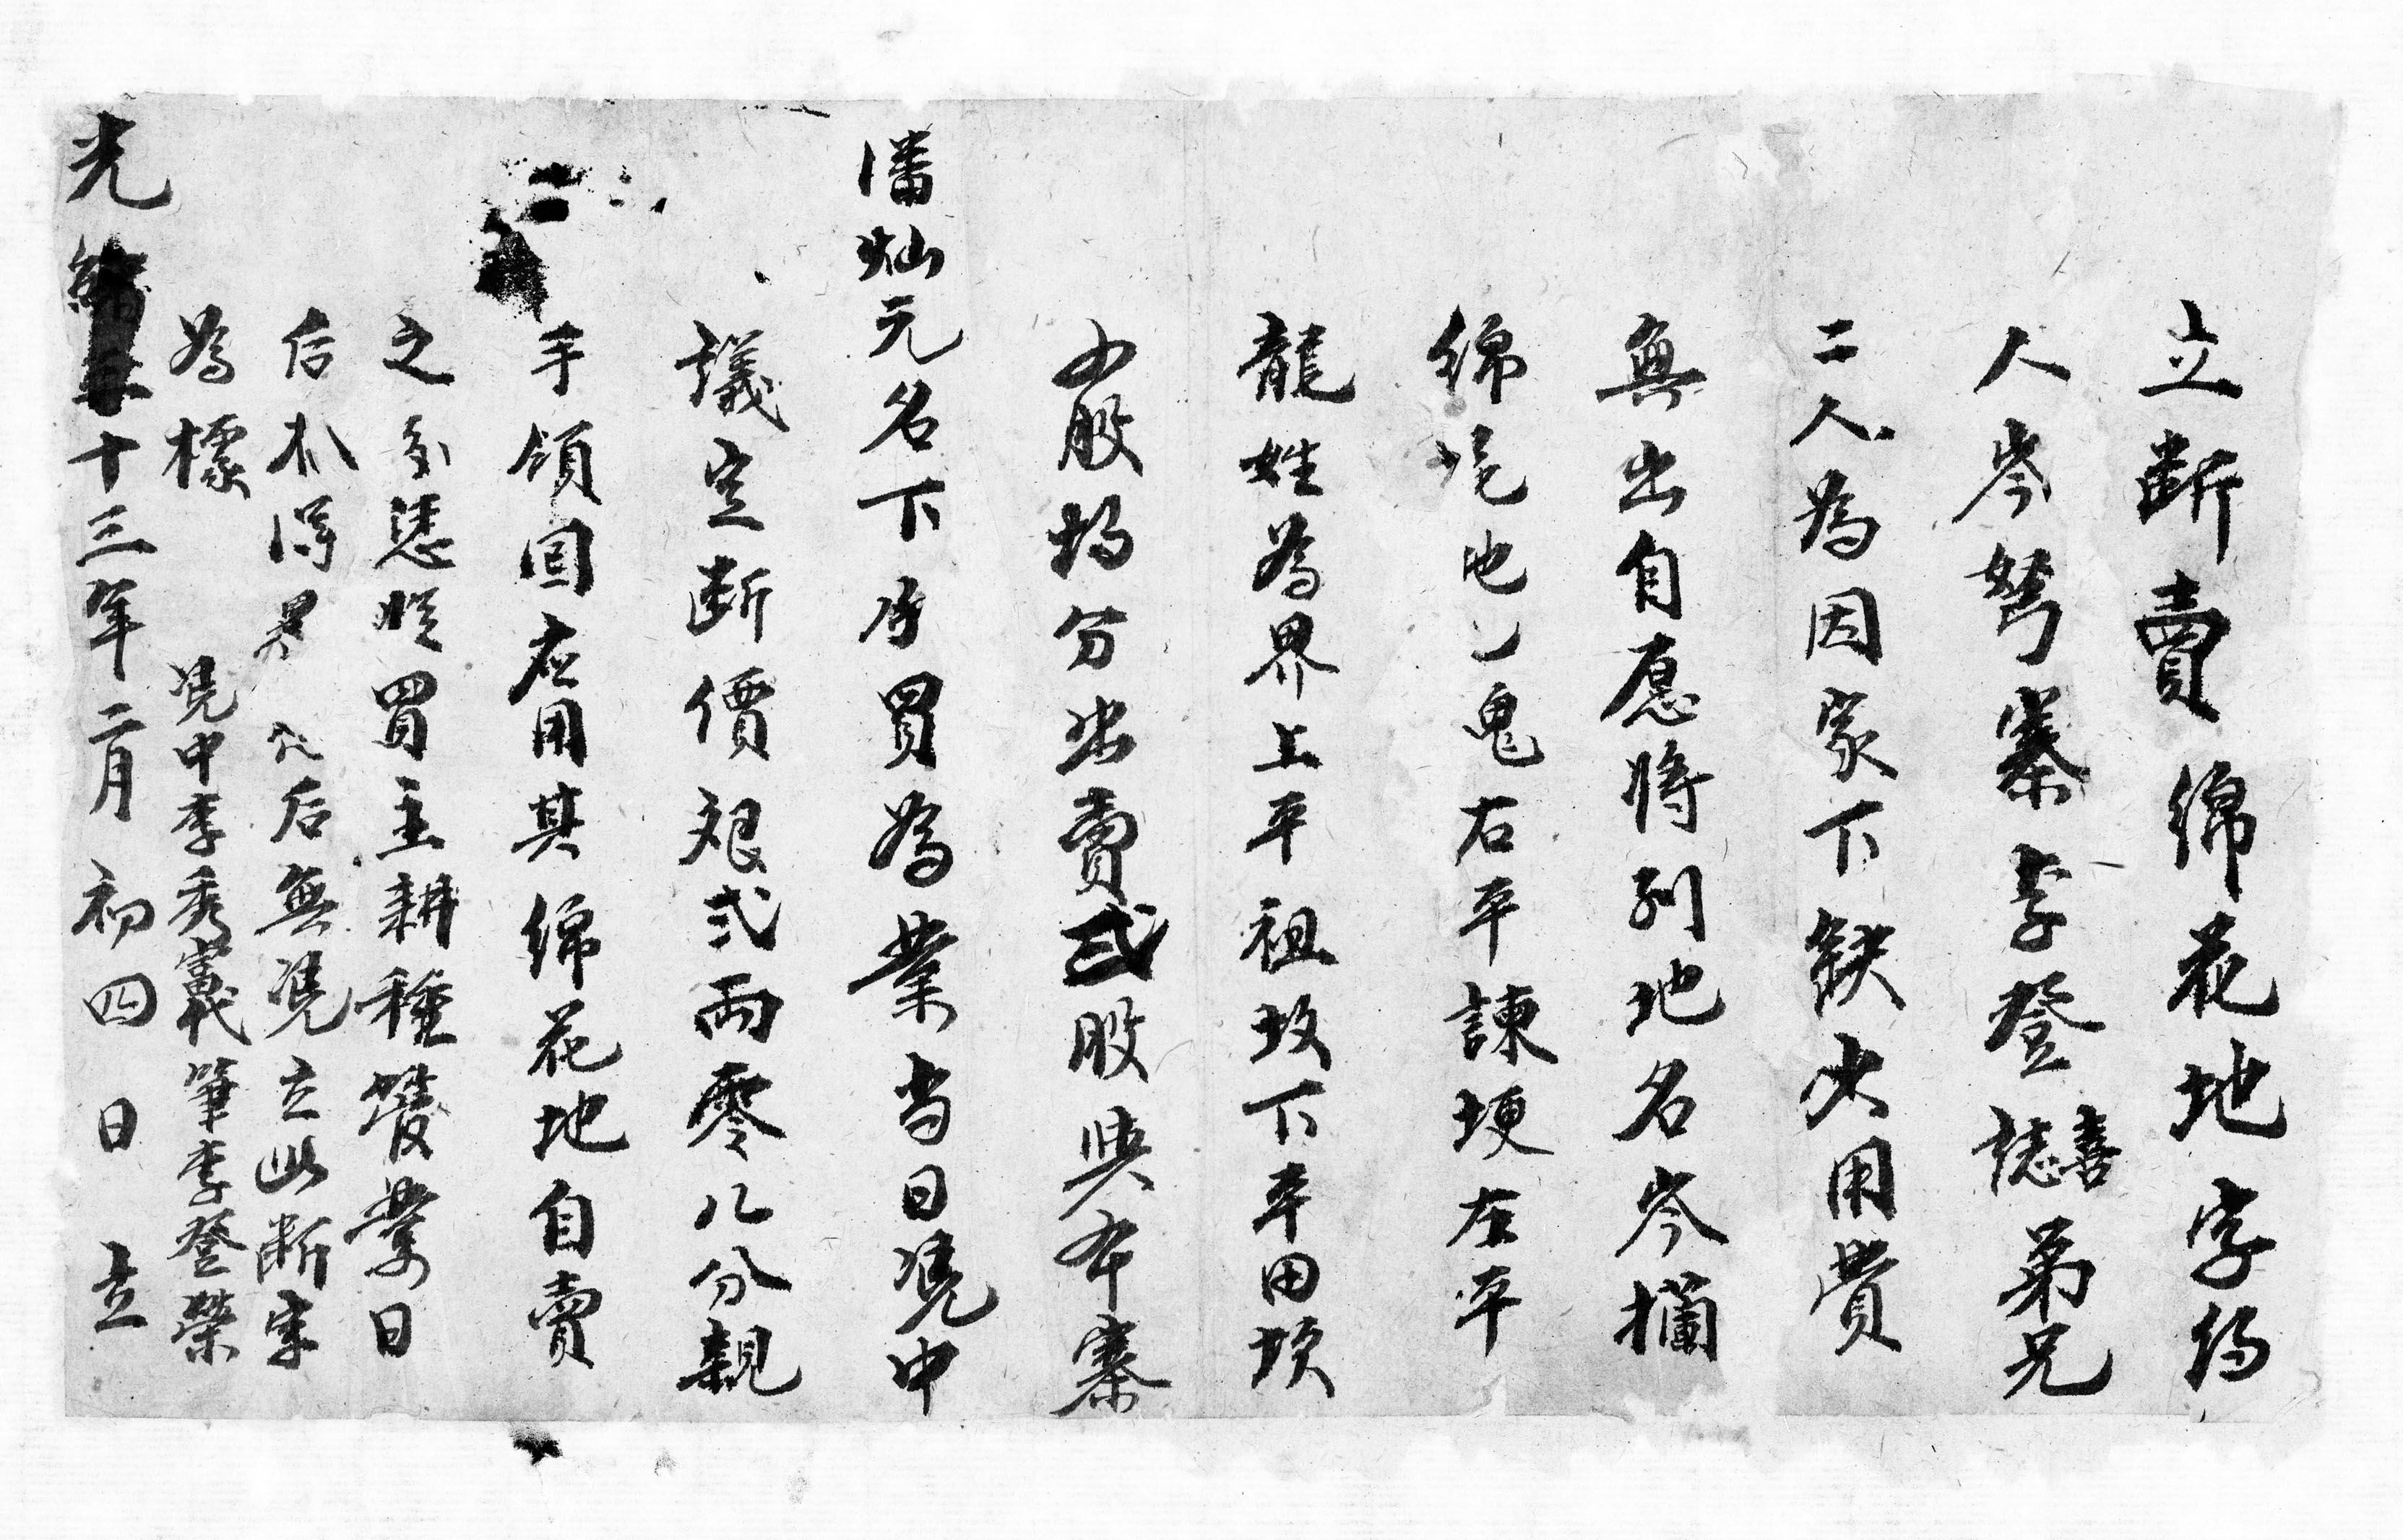 立断賣綿花地字約
人岑努寨李登誌喜弟兄
二人為因家下缺少用費
無出自愿將到地名岑攔
綿地右平諫埂左平
龍姓為界上平祖坟下平田坎
股均分出賣弍股與本寨
潘灿元名下承買為業当日凴中
議定断價艮弍両零八分親
手領回応用其綿花地自賣
之後凴從買主耕種管業日
后不得異言 恐后無凴立此断字
為據
凴中李秀 代筆李登榮
光緒十三年二月初四日立